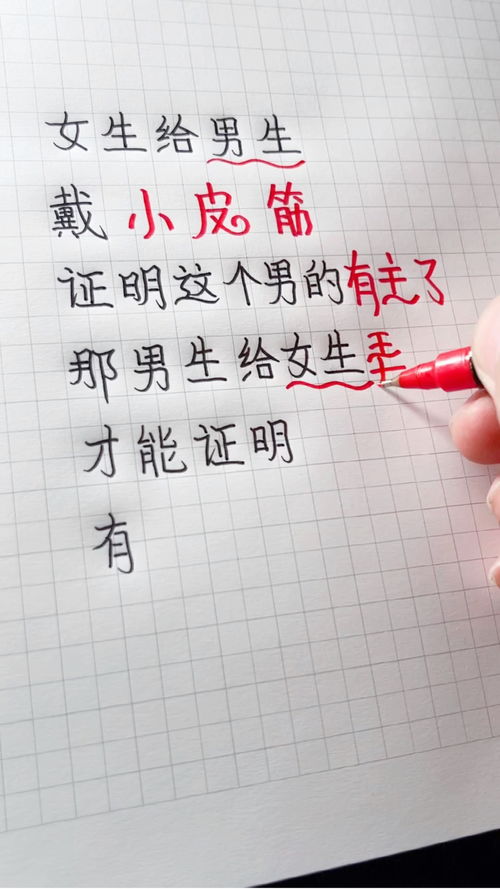 女生给男生
戴小皮筋
证明这个男的有主了
那男生给女生
才能证明
有